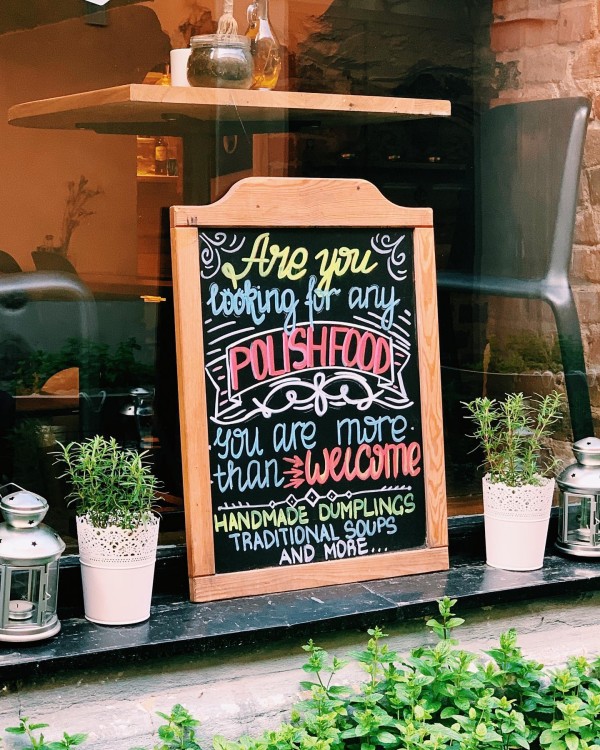 Are you
looking for any
POLISH FOOD
you are more
than welcome
HANDMADE DUMPLINGS
TRADITIONAL SOUPS
AND MORE...